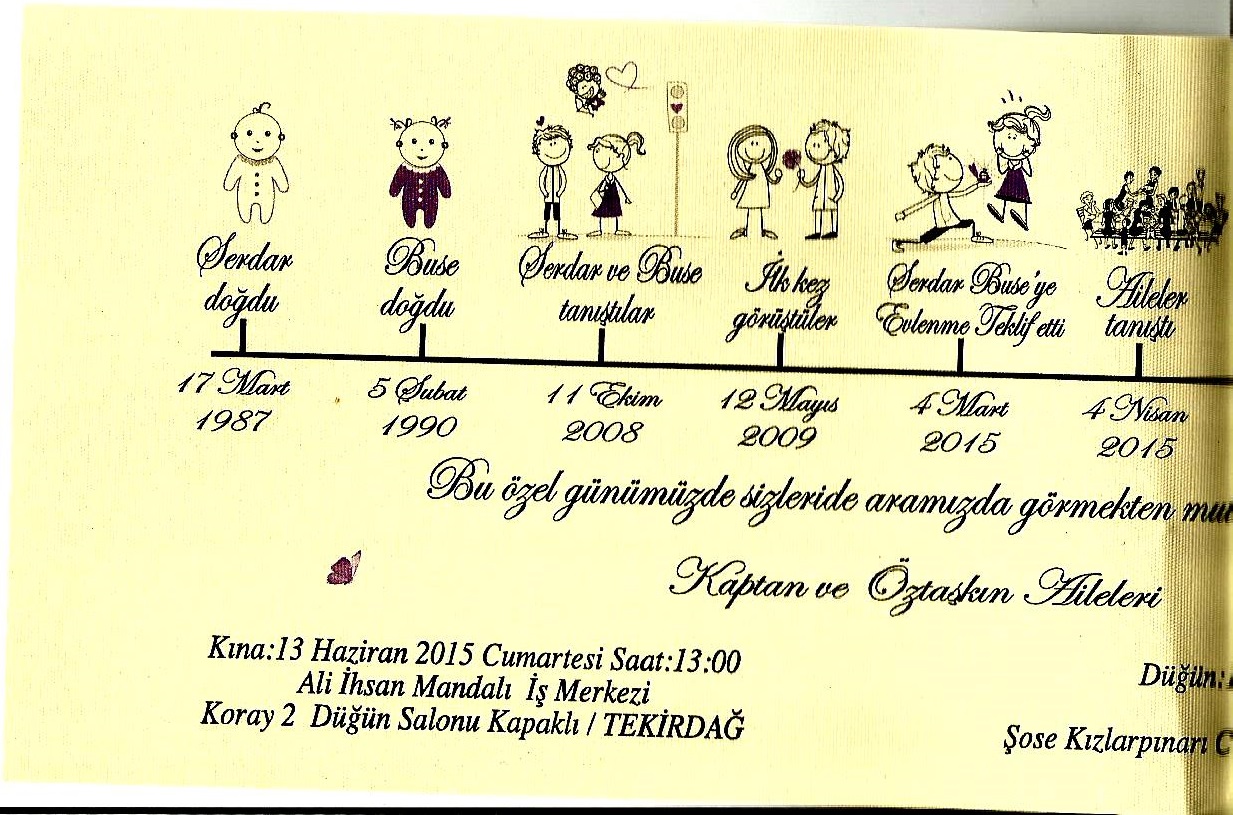 Serdar
doğdu
17 Mart
1987
Buse
doğdu
5 Şubat
1990
Serdar ve Buse
tanıştılar
11 Ekim
2008
İlk kez
görüştüler
12 Mayıs
2009
Serdar Buse'ye
Evlenme Teklif etti
4 Mart
2015
Aileler
tanıştı
4 Nisan
2015
Bu özel günümüzde sizleride aramızda görmekten
Kaptan ve Öztaşkın Aileleri
Kına:13 Haziran 2015 Cumartesi Saat:13:00
Ali İhsan Mandalı İş Merkezi
Koray 2 Düğün Salonu Kapaklı / TEKİRDAĞ
Düğün:
Şose Kızlarpınarı C